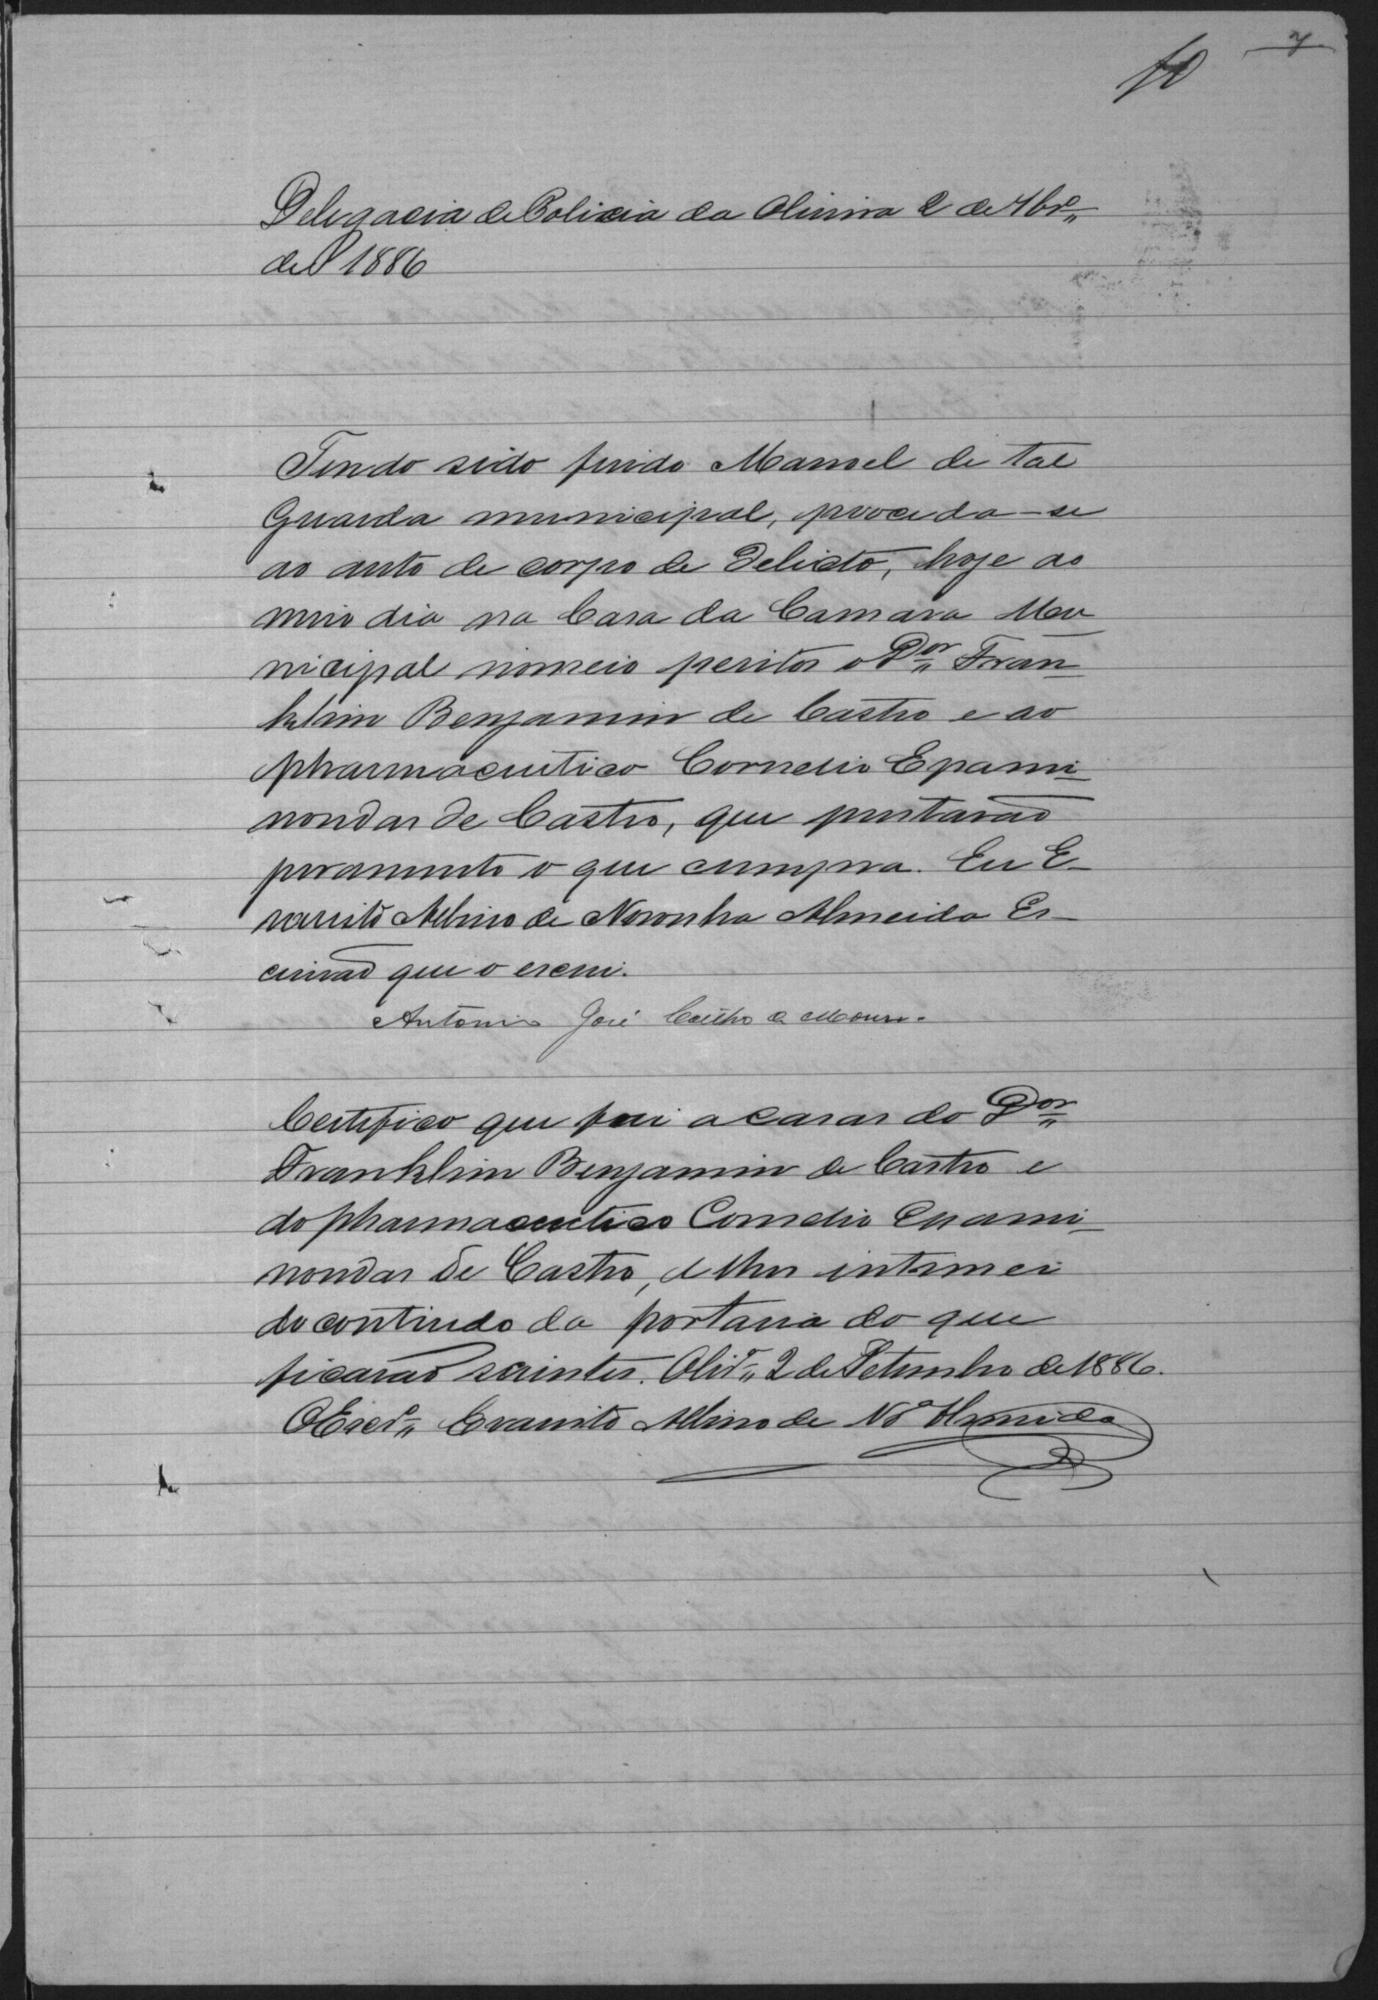 10
7
Delegacia de Policia da Oliveira 2 de 7brº
de 1886
Tendo sido ferido Manoel de tal
Guarda municipal, proceda-se
ao auto de corpo de Delicto, hoje ao
meio dia na Casa da Camara Mu
nicipal nomeio peritos o Dor Fran
klim Benjamim de Castro e ao
pharmaceutico Cornelio Epami
nondas de Castro, que prestarão
juramento o que cumpra. Eu E-
varisto Albino de Noronha Almeida Es-
crivão que o escrevi.
Antonio José Coelho de Moura.
Certifico que fui a casas do Dor
Franklim Benjamim de Castro e
do pharmaceutico Cornelio Epami
nondas de Castro, e lhes intimei
do contiudo da portaria do que
ficarão scientes. Olivrª 2 de Setembro de 1886.
O Escrº Evaristo Albino de Nª Almeida